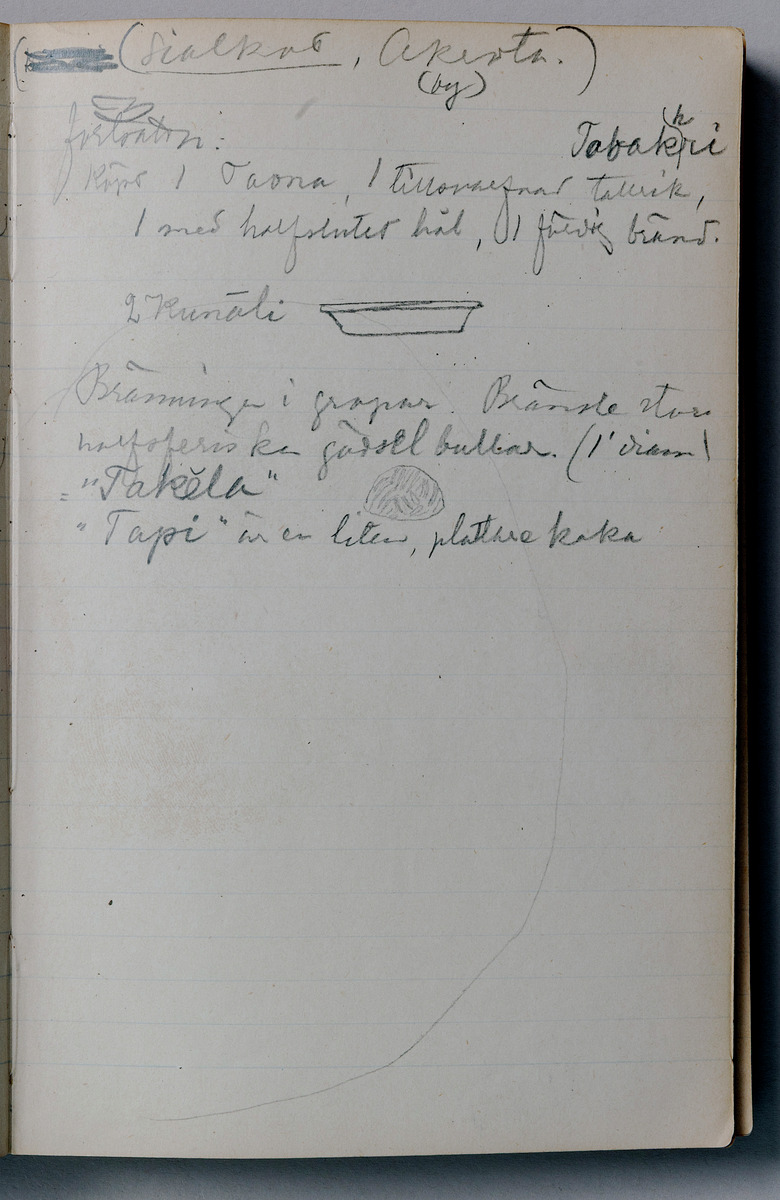 (Sialkot, Akerota.)
(by)
Tabakhri
Köpt 1 Taona, 1 tallrik,
1 med halfslutet hål, 1 färdig bränd.
2 Kunāli
Bränningen i gropar. Bränsle stora
halfsferiska gödselbullar. (1' diam)
"Takĕla"
"Tapi" är en liten, plattare kaka